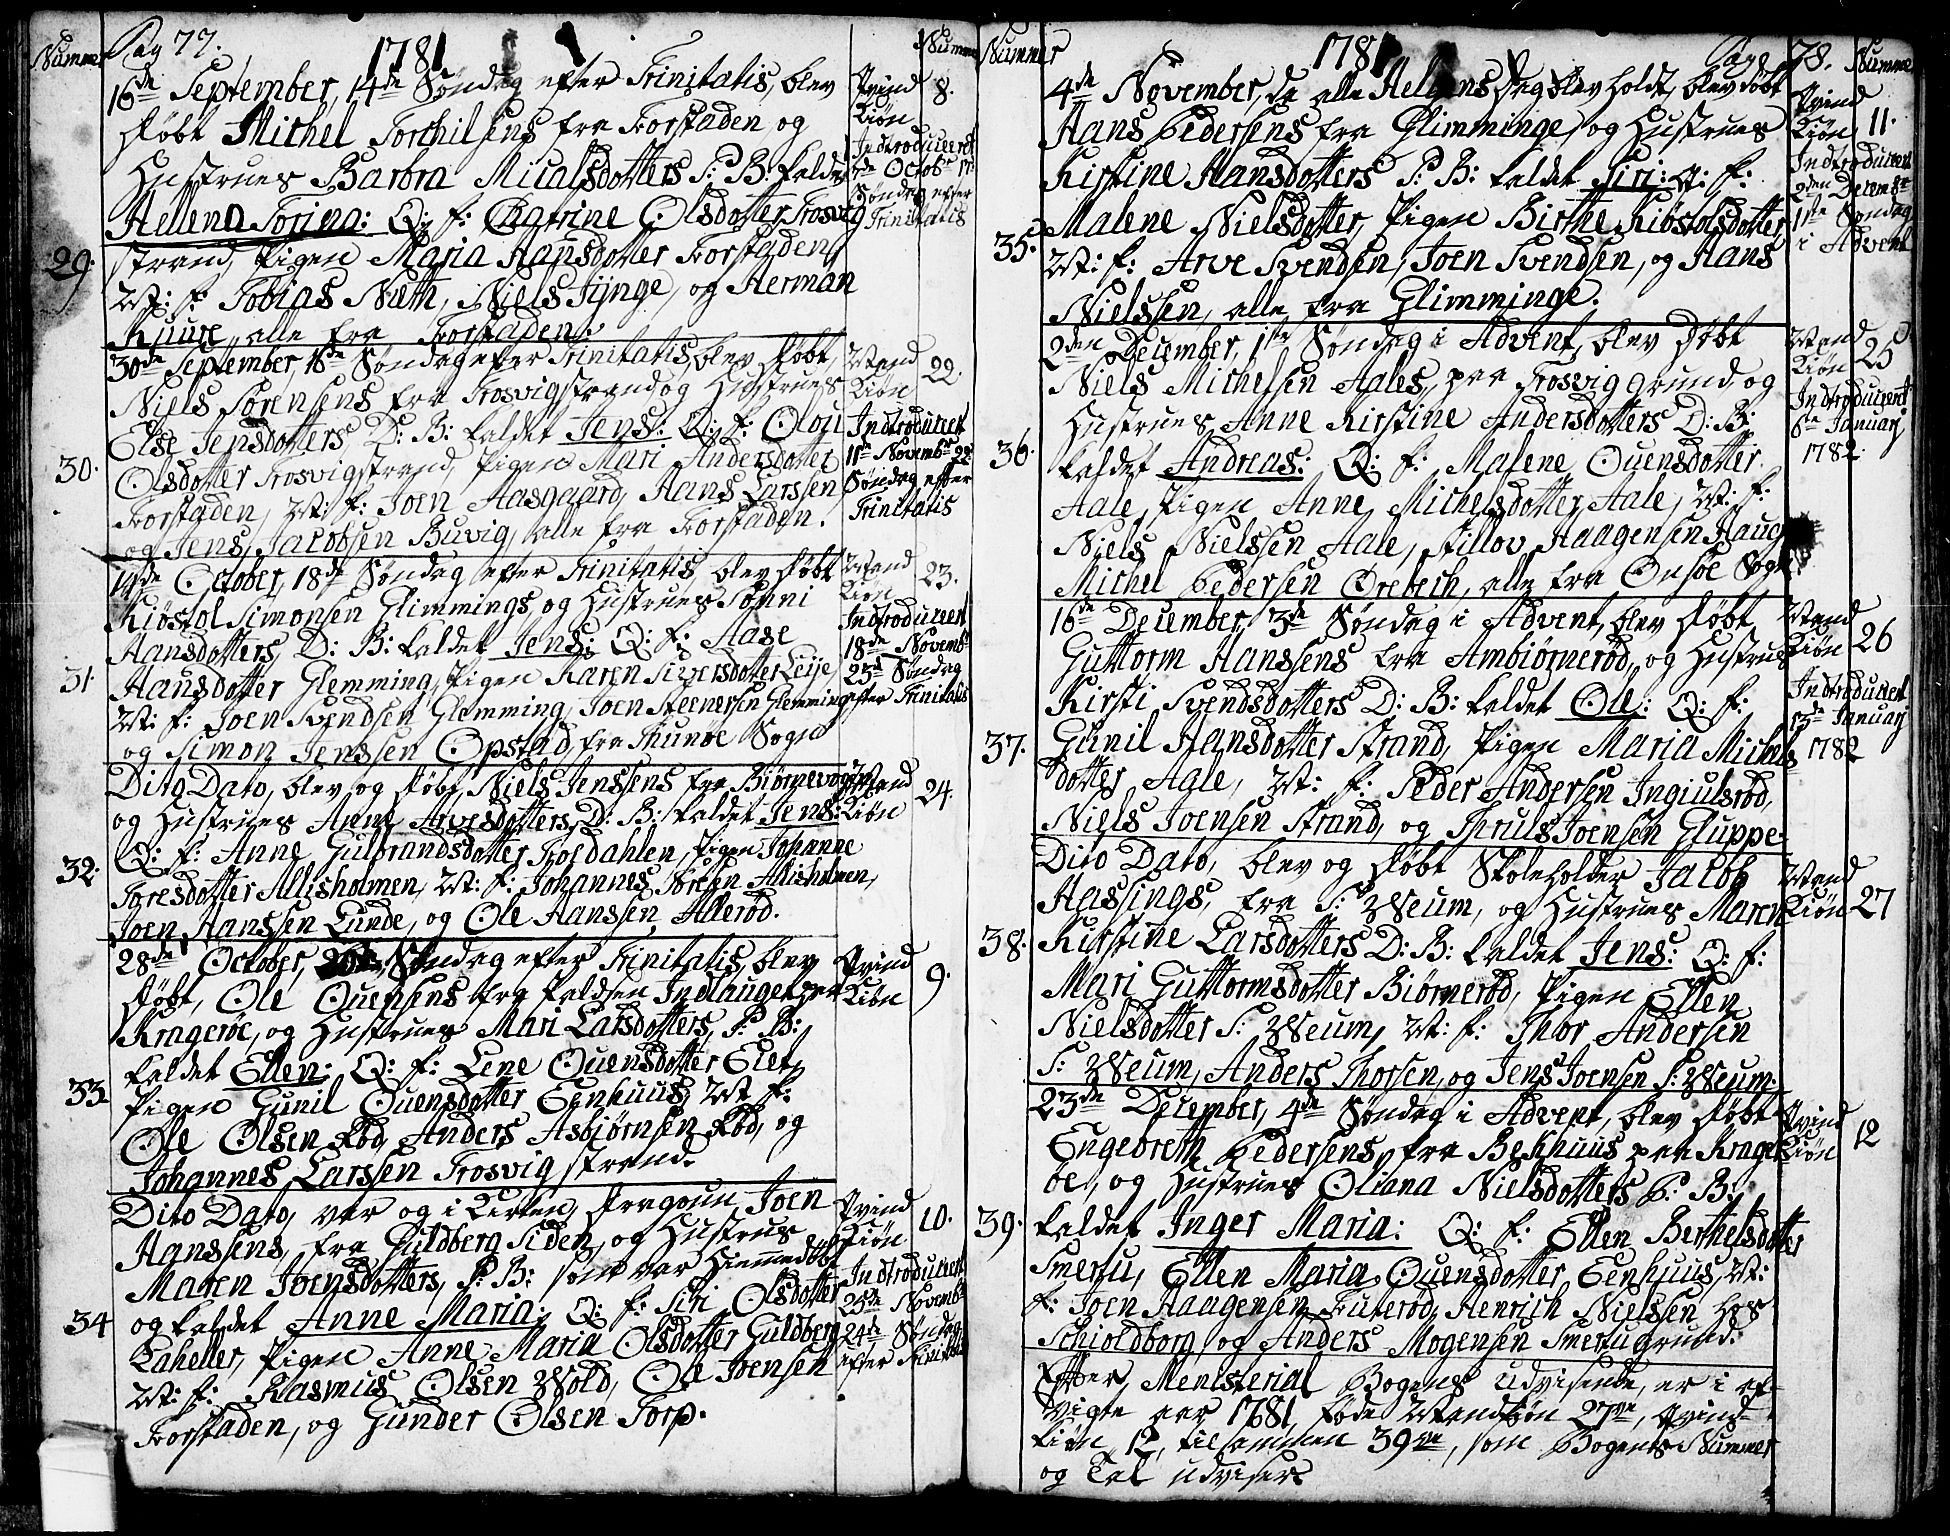 Nummer Pag 77. 1781 Numm
16de September, 14de Søndag efter Trinitatis, blev
døbt Michel Torchilsens fra Forstaden og
Hustrues Barbra Micalsdotters P: B: kaldet
Hellena Torina: Q: f: Catrine Olsdotter Trosvig
strand, Pigen Maria Hansdotter Forstaden
M: f: Tobias Næth, Niels Fÿnge, og Herman
Kjure, alle fra Forstaden.
29.
Qvind
Kiøn
Indtroduceret
7de Octobr 17de
Søndag efter
Trinitatis
8.
30de September, 16de Søndag efter Trinitatis, blev døbt,
Niels Sørensens fra Trosvigstrand og Hustrues
Else Jensdotters D: B: kaldet Jens: Q: f: Olou
Olsdotter Trosvigstrand, Pigen Mari Andersdotter
Forstaden, M: f: Joen Aasgaard, Hans Larssen
og Jens Jacobsen Buvig, alle fra Forstaden.
30.
Mand
Kiøn
Indtroduceret
11te Novembr 22
Søndag efter
Trinitatis
22.
14de October, 18de Søndag efter Trinitatis, blev døbt
Kiøstol Simonsen Glimmings, og Hustrues Sønni
Hansdotters D: B: kaldet Jens: Q: f: Aase
Hansdotter Glemming, Pigen Karen Siversdotter Leije
M: f: Joen Svendsen Glemming, Joen Steenersen Glemming
og Simon Jenssen Opstad fra Thunøe Sogn
31.
Mand
Kiøn
Indtroduceret
18de Novemb
23de Søndag
efter Trinitatis
23.
Dito Dato, blev og døbt, Niels Jenssens fra Biørnevogen
og Hustrues Anne Arvesdotters D: B: kaldet Jens:
Q: f: Anne Gulbrandsdotter Rosdahlen, Pigen Johanne
Toresdotter Allisholmen, M: f: Johannes Toresen Allisholmen,
Joen Hanssen Lunde, og Ole Hanssen Allerød.
32.
Mand
Kiøn
24.
28de October, Søndag efter Trinitatis, blev
døbt, Ole Ouensens fra Indlauget paa
Kragerøe, og Hustrues Mari Larsdotters, P: B:
kaldet Ellen: Q: f: Lene Ouensdotter Elet,
Pigen Gunil Ouensdotter Eenhuus, M: f:
Ole Olsen Rød, Anders Asbjørnsen Rød, og
Johannes Larssen Trosvig strand.
33
Qvind
Kiøn
9.
Dito Dato, var og i Kirken, Dragoun Joen
Hanssens, fra Guldberg Siden, og Hustrues
Maren Joensdotters, P: B: som var Hiemmedøbt
og kaldet Anne Maria: Q: f: Siri Olsdotter
Laheller, Pigen Anne Maria Olsdotter Guldberg
M: f: Rasmus Olsen Wold, Ole Joensen
Forstaden, og Gunder Olsen Torp.
34
Qvind
Kiøn
Indtroduceret
25de Novemb
24de Søndag
efter Trinitatis
10.
Nummer 1781 Pag 78. Nummer
4de November, da alle Helgens Dag blev holdt, blev døbt
Hans Pedersens fra Glimminge, og Hustrues
Kirstine Hansdotters P: B: kaldet Siri: Q: f:
Malene Nielsdotter, Pigen Birthe Kiøstolsdotter
M: f: Arve Svendsen, Joen Svendsen, og Hans
Nielssen, alle fra Glimminge.
35.
Qvind
Kiøn
Indtroduceret
2den Decembr
1ste Søndag
i Advent
11.
2den December, 1ste Søndag i Advent, blev døbt
Niels Michelsen Aales, paa Trosviggrund, og
Hustrues Anne Kirstine Andersdotters D: B:
kaldet Andreas: Q: f: Malene Ouensdotter
Aale, Pigen Anne Michelsdotter Aale, M: f:
Niels Nielssen Aale, Pillov Haagensen Haug
Michel Pedersen Ørebech, alle fra Onsøe Sogn
36.
Mand
Kiøn
Indtroduceret
6te Januarj
1782
25
16de December, 3de Søndag i Advent, blev døbt
Guttorm Hanssens fra Ambiørnerød, og Hustrues
Kirsti Svendsdotters D: B: kaldet Ole: Q: f:
Gunil Hansdotter Strand, Pigen Maria Michels
dotter Aale, M: f: Peder Andersen Ingiulsrød,
Niels Joensen Strand, og Thruls Joensen Gluppe
37.
Mand
Kiøn
Indtroduceret
13de Januarj
1782
26
Dito Dato, blev og døbt Skoleholder Jacob
Hassings, fra S: Weum, og Hustrues Maren
Kirstine Larsdotters D: B: kaldet Jens: Q: f:
Mari Guttormsdotter Biørnerød, Pigen Ellen
Nielsdotter S: Weum, M: f: Thor Andersen
S: Weum, Anders Thorsen, og Jens Joensen S: Weum.
38.
Mand
Kiøn
27
23de December, 4de Søndag i Advent, blev døbt
Engebreth Pedersens, fra Bekhuus paa Krager
øe, og Hustrues Oliana Nielsdotters P: B:
kaldet Inger Maria: Q: f: Ellen Berthelsdotter
Smertu, Ellen Maria Ouensdotter Eenhuus, M:
f: Joen Haagensen Futerød, Henrich Nielssen hos
Schioldborg og Anders Mogensen Smertugrund.
39.
Qvind
Kiøn
12
Efter Menisterial Bogens Udvisende, er i af-
vigte aar 1781, føde Mandkiøn 27ve, Qvind-
kiøn 12, tilsammen 39ve, som Bogens Nummer
og Tal udviser